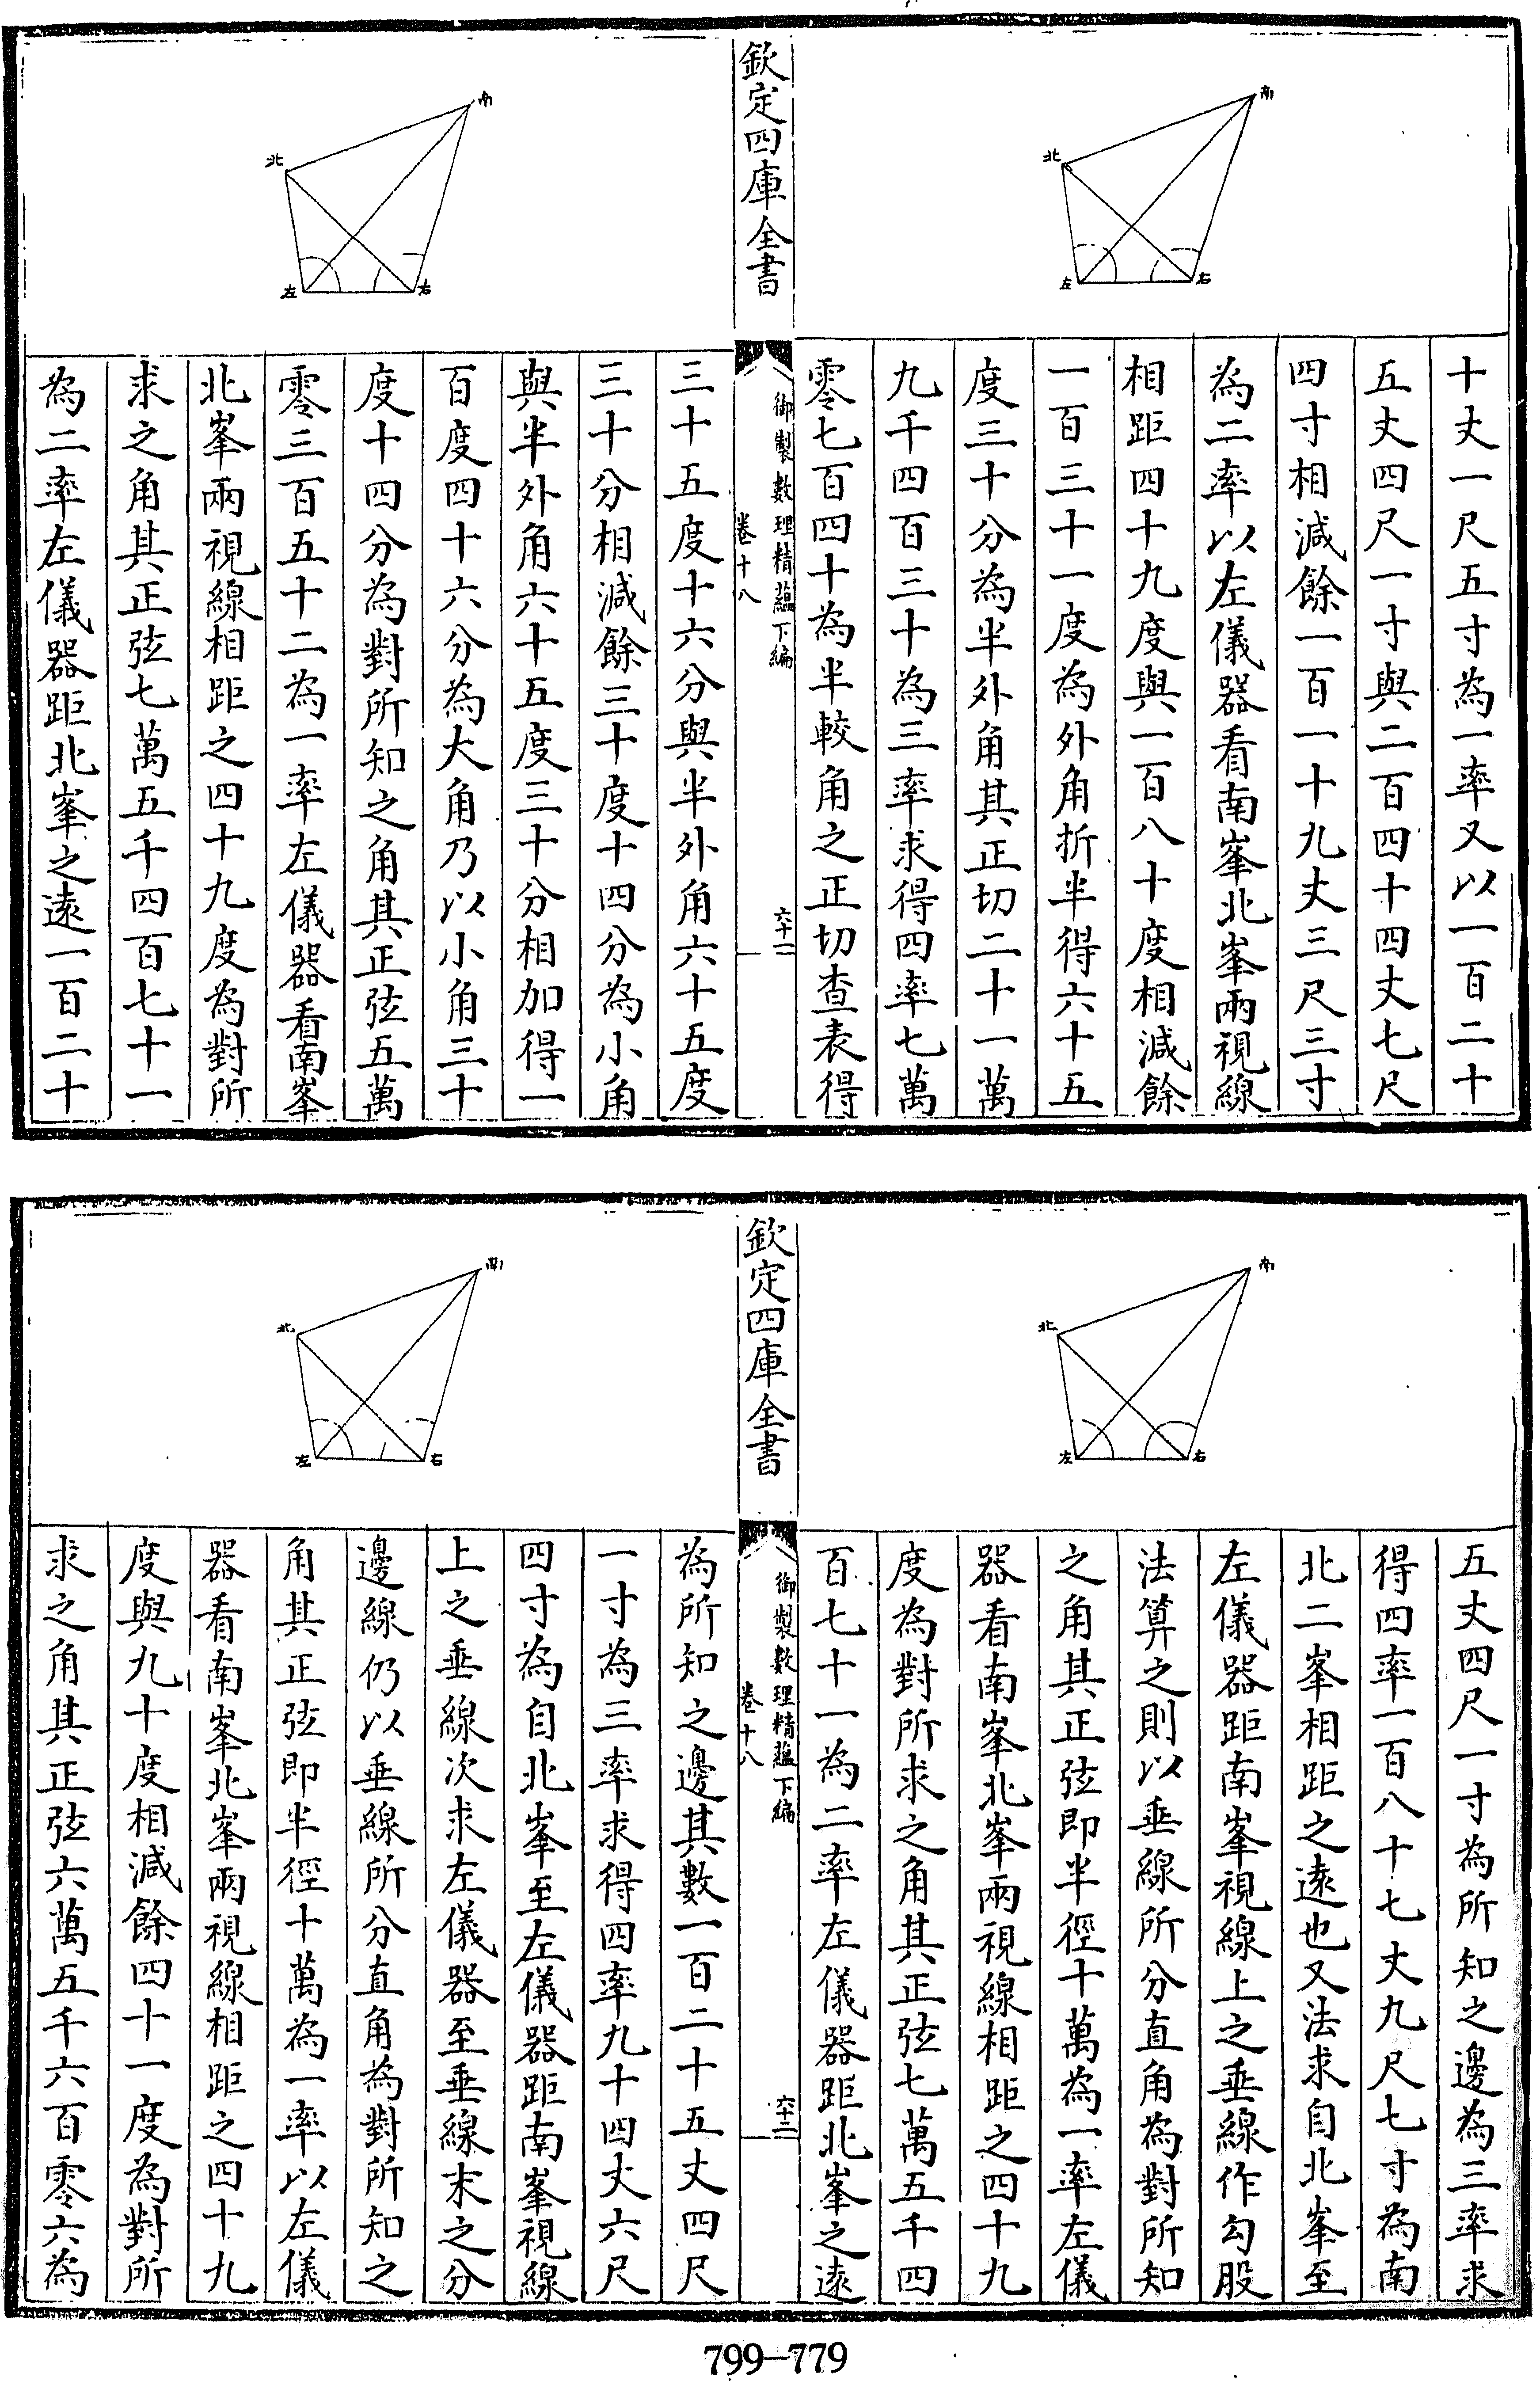 南
北
左
右
十丈一尺五寸為一率又以一百二十
五丈四尺一寸與二百四十四丈七尺
四寸相減餘一百一十九丈三尺三寸
為二率以左儀器看南峯北峯兩視線
相距四十九度與一百八十度相減餘
一百三十一度為外角折半得六十五
度三十分為半外角其正切二十一萬
九千四百三十為三率求得四率七萬
零七百四十為半較角之正切查表得
欽定四庫全書
御製數理精蘊下編
卷十八
六十一
南
北
左
右
三十五度十六分與半外角六十五度
三十分相減餘三十度十四分為小角
與半外角六十五度三十分相加得一
百度四十六分為大角乃以小角三十
度十四分為對所知之角其正弦五萬
零三百五十二為一率左儀器看南峯
北峯兩視線相距之四十九度為對所
求之角其正弦七萬五千四百七十一
為二率左儀器距北峯之遠一百二十
南
北
左
右
五丈四尺一寸為所知之邊為三率求
得四率一百八十七丈九尺七寸為南
北二峯相距之遠也又法求自北峯至
左儀器距南峯視線上之垂線作勾股
法算之則以垂線所分直角為對所知
之角其正弦即半徑十萬為一率左儀
器看南峯北峯兩視線相距之四十九
度為對所求之角其正弦七萬五千四
百七十一為二率左儀器距北峯之遠
欽定四庫全書
御製數理精蘊下編
卷十八
六十二
南
北
左
右
為所知之邊其數一百二十五丈四尺
一寸為三率求得四率九十四丈六尺
四寸為自北峯至左儀器距南峯視線
上之垂線次求左儀器至垂線末之分
邊線仍以垂線所分直角為對所知之
角其正弦即半徑十萬為一率以左儀
器看南峯北峯兩視線相距之四十九
度與九十度相減餘四十一度為對所
求之角其正弦六萬五千六百零六為
799-779